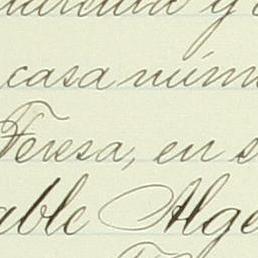 y
casa núm
Teresa, en s
able Alge